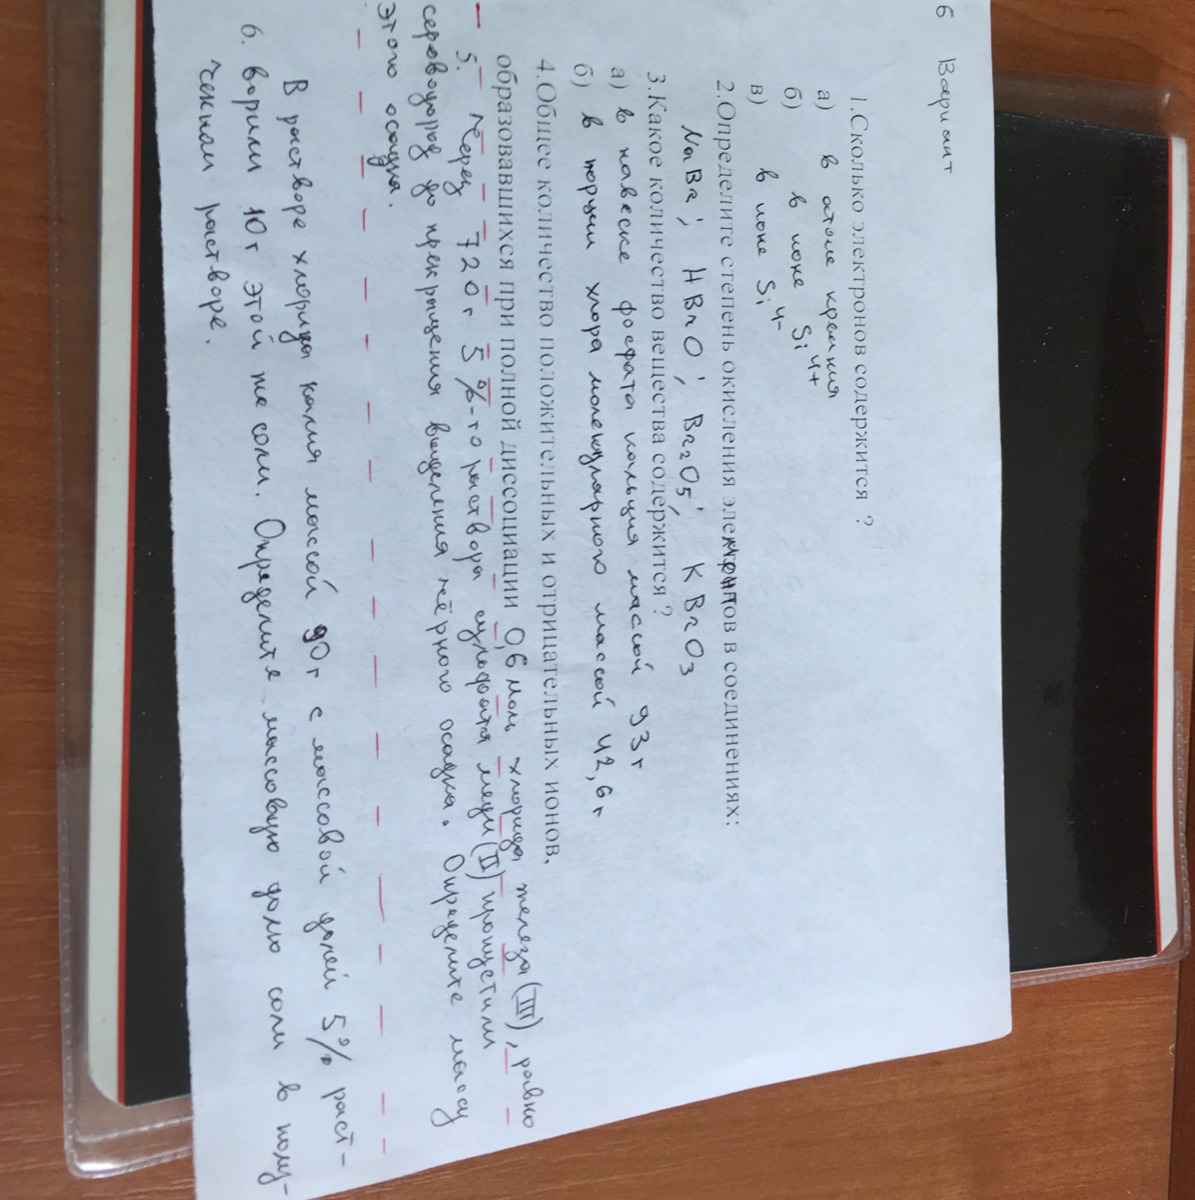 6 Вариант
1.Сколько электронов содержится ?
а) в атоме кремния
б) в ионе Si 4+
в) в ионе Si 4-
2.Определите степень окисления элементов в соединениях:
NaBr; HBrO; Br2O5; KBrO3
3.Какое количество вещества содержится ?
а) в навеске фосфата кальция массой 93 г
б) в порции хлора молекулярного массой 42,6 г
4.Общее количество положительных и отрицательных ионов,
образовавшихся при полной диссоциации 0,6 моль хлорида железа (III), равно
5. Через 720 г 5%-го раствора сульфата меди (II) пропустили
сероводород до прекращения выделения чёрного осадка. Определите массу
этого осадка.
В растворе хлорида калия массой 90 г с массовой долей 5% раст-
6. ворили 10 г этой же соли. Определите массовую долю соли в полу-
ченном растворе.